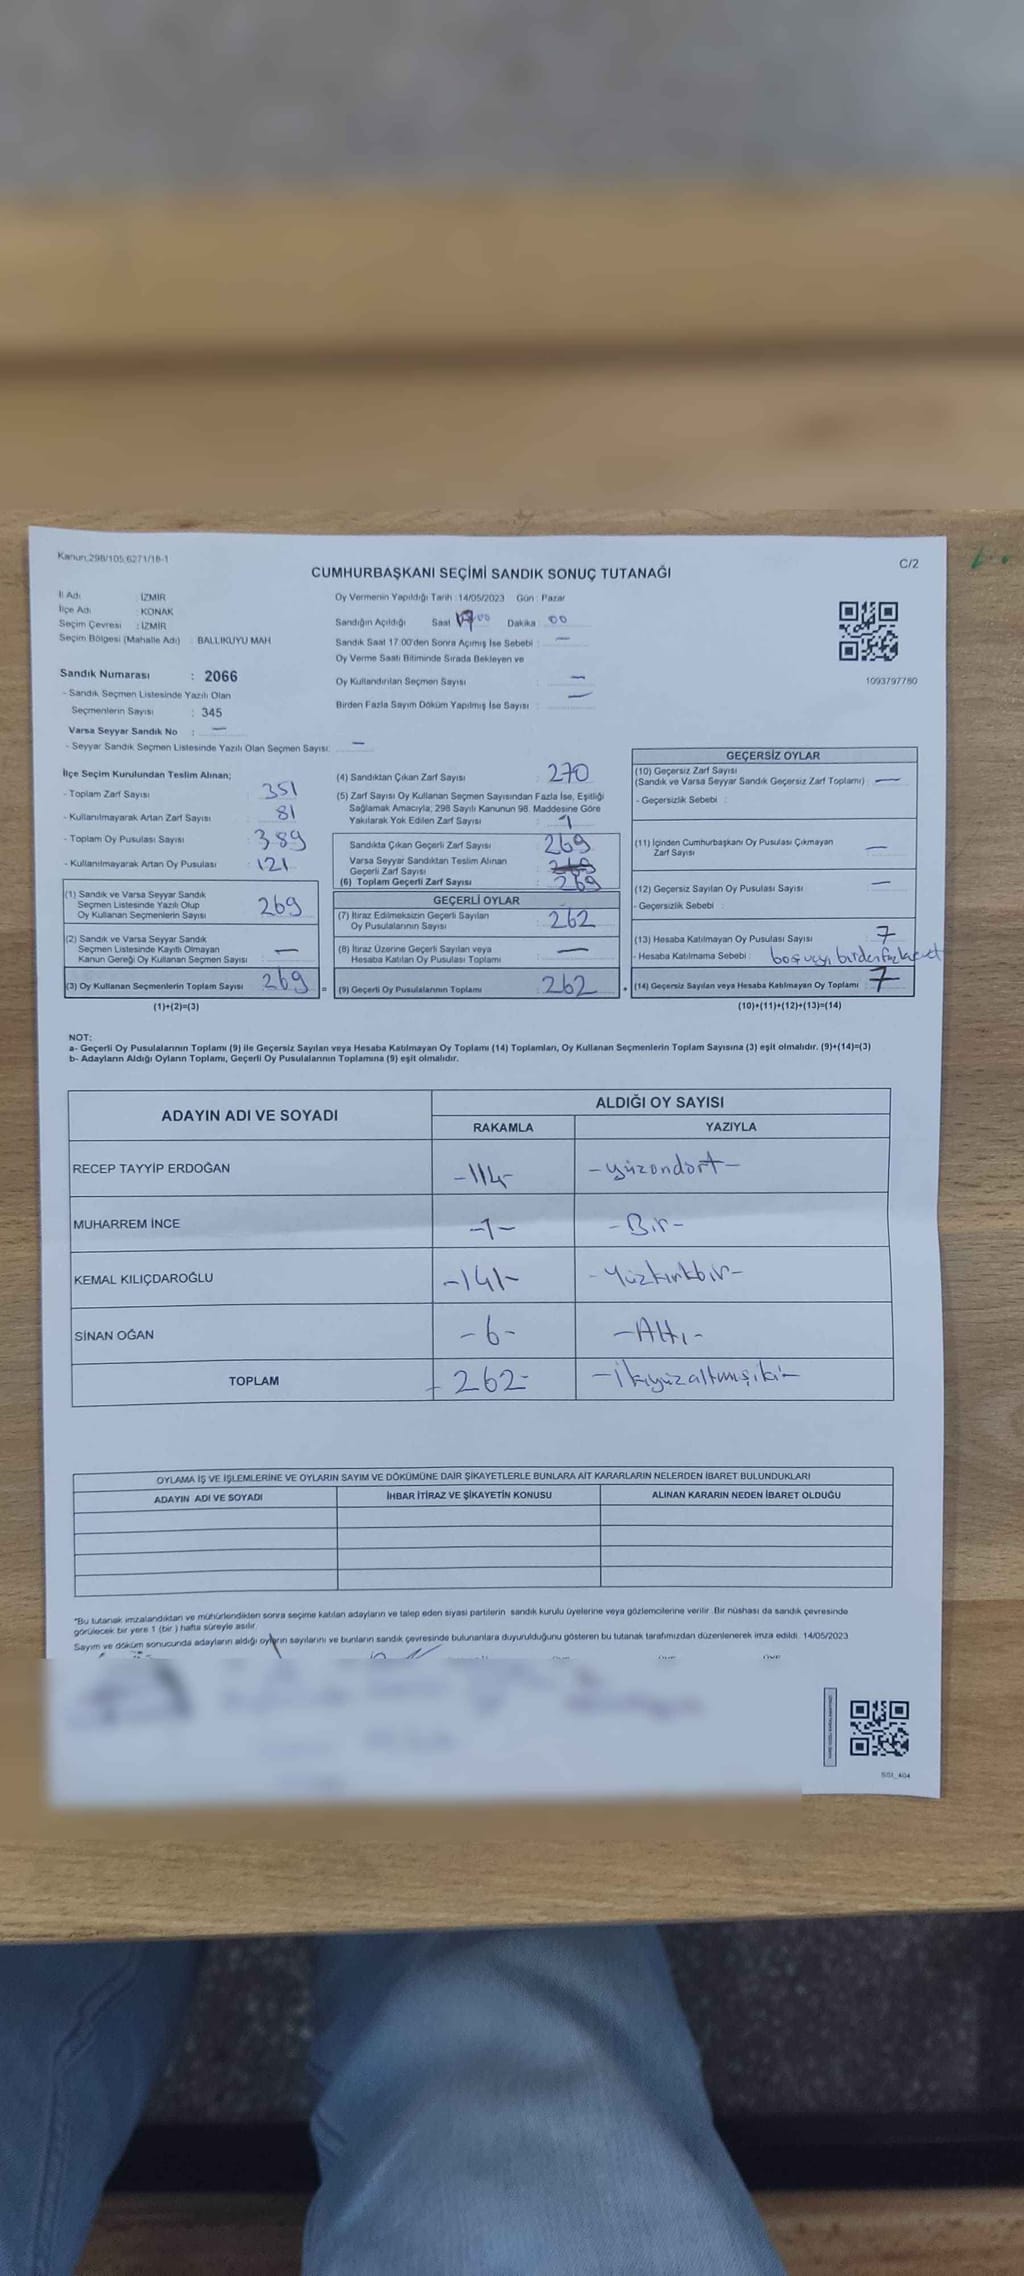 Kanun:298/105,6271/18-1
C/2
CUMHURBAŞKANI SEÇİMİ SANDIK SONUÇ TUTANAĞI
İl Adı : İZMİR
İlçe Adı : KONAK
Seçim Çevresi : İZMİR
Seçim Bölgesi (Mahalle Adı) : BALLIKUYU MAH
Sandık Numarası : 2066
- Sandık Seçmen Listesinde Yazılı Olan
Seçmenlerin Sayısı : 345
Varsa Seyyar Sandık No : —
- Seyyar Sandık Seçmen Listesinde Yazılı Olan Seçmen Sayısı: —
Oy Vermenin Yapıldığı Tarih :14/05/2023 Gün : Pazar
Sandığın Açıldığı Saat Dakika : 00
Sandık Saat 17.00'den Sonra Açımış İse Sebebi : —
Oy Verme Saati Bitiminde Sırada Bekleyen ve
Oy Kullandırılan Seçmen Sayısı : —
Birden Fazla Sayım Döküm Yapılmış İse Sayısı : —
1093797760
İlçe Seçim Kurulundan Teslim Alınan;
- Toplam Zarf Sayısı : 351
- Kullanılmayarak Artan Zarf Sayısı : 81
- Toplam Oy Pusulası Sayısı : 389
- Kullanılmayarak Artan Oy Pusulası : 121
(1) Sandık ve Varsa Seyyar Sandık
Seçmen Listesinde Yazılı Olup
Oy Kullanan Seçmenlerin Sayısı : 269
(2) Sandık ve Varsa Seyyar Sandık
Seçmen Listesinde Kayıtlı Olmayan
Kanun Gereği Oy Kullanan Seçmen Sayısı : —
(3) Oy Kullanan Seçmenlerin Toplam Sayısı : 269
(1)+(2)=(3)
(4) Sandıktan Çıkan Zarf Sayısı : 270
(5) Zarf Sayısı Oy Kullanan Seçmen Sayısından Fazla İse, Eşitliği
Sağlamak Amacıyla; 298 Sayılı Kanunun 98. Maddesine Göre
Yakılarak Yok Edilen Zarf Sayısı : 1
Sandıkta Çıkan Geçerli Zarf Sayısı : 269
Varsa Seyyar Sandıktan Teslim Alınan
Geçerli Zarf Sayısı : 269
(6) Toplam Geçerli Zarf Sayısı : 269
GEÇERLİ OYLAR
(7) İtiraz Edilmeksizin Geçerli Sayılan
Oy Pusulalarının Sayısı : 262
(8) İtiraz Üzerine Geçerli Sayılan veya
Hesaba Katılan Oy Pusulası Toplamı : —
= (9) Geçerli Oy Pusulalarının Toplamı : 262 +
GEÇERSİZ OYLAR
(10) Geçersiz Zarf Sayısı
(Sandık ve Varsa Seyyar Sandık Geçersiz Zarf Toplamı) : —
- Geçersizlik Sebebi :
(11) İçinden Cumhurbaşkanı Oy Pusulası Çıkmayan
Zarf Sayısı : —
(12) Geçersiz Sayılan Oy Pusulası Sayısı : —
- Geçersizlik Sebebi :
(13) Hesaba Katılmayan Oy Pusulası Sayısı : 7
- Hesaba Katılmama Sebebi : boş veya birden fazla evet
(14) Geçersiz Sayılan veya Hesaba Katılmayan Oy Toplamı : 7
(10)+(11)+(12)+(13)=(14)
NOT:
a- Geçerli Oy Pusulalarının Toplamı (9) ile Geçersiz Sayılan veya Hesaba Katılmayan Oy Toplamı (14) Toplamları, Oy Kullanan Seçmenlerin Toplam Sayısına (3) eşit olmalıdır. (9)+(14)=(3)
b- Adayların Aldığı Oyların Toplamı, Geçerli Oy Pusulalarının Toplamına (9) eşit olmalıdır.
ADAYIN ADI VE SOYADI
ALDIĞI OY SAYISI
RAKAMLA YAZIYLA
RECEP TAYYİP ERDOĞAN -114- -yüzondört-
MUHARREM İNCE -1- -Bir-
KEMAL KILIÇDAROĞLU -141- -Yüzkırkbir-
SİNAN OĞAN -6- -Altı-
TOPLAM -262- -İkiyüzaltmışiki-
OYLAMA İŞ VE İŞLEMLERİNE VE OYLARIN SAYIM VE DÖKÜMÜNE DAİR ŞİKAYETLERLE BUNLARA AİT KARARLARIN NELERDEN İBARET BULUNDUKLARI
ADAYIN ADI VE SOYADI İHBAR İTİRAZ VE ŞİKAYETİN KONUSU ALINAN KARARIN NEDEN İBARET OLDUĞU
*Bu tutanak imzalandıktan ve mühürlendikten sonra seçime katılan adayların ve talep eden siyasi partilerin sandık kurulu üyelerine veya gözlemcilerine verilir. Bir nüshası da sandık çevresinde
görülecek bir yere 1 (bir ) hafta süreyle asılır.
Sayım ve döküm sonucunda adayların aldığı oyların sayılarını ve bunların sandık çevresinde bulunanlara duyurulduğunu gösteren bu tutanak tarafımızdan düzenlenerek imza edildi. 14/05/2023
SSI_404